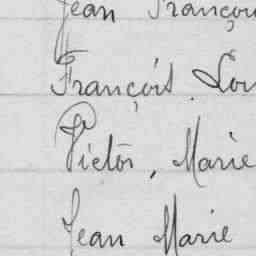 Jean François
François Lou
Victor, Marie
Jean Marie